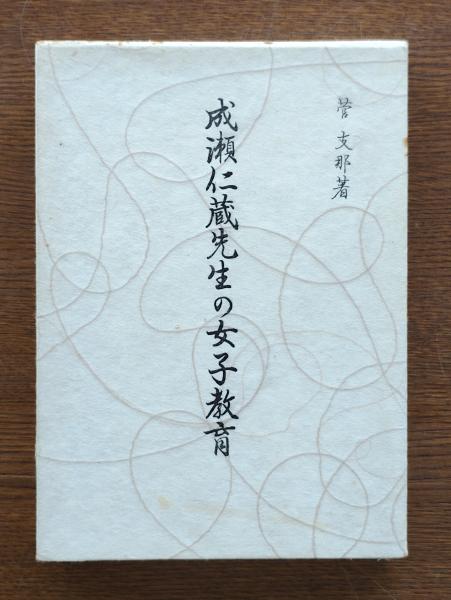 菅 支那著
成瀬仁蔵先生の女子教育